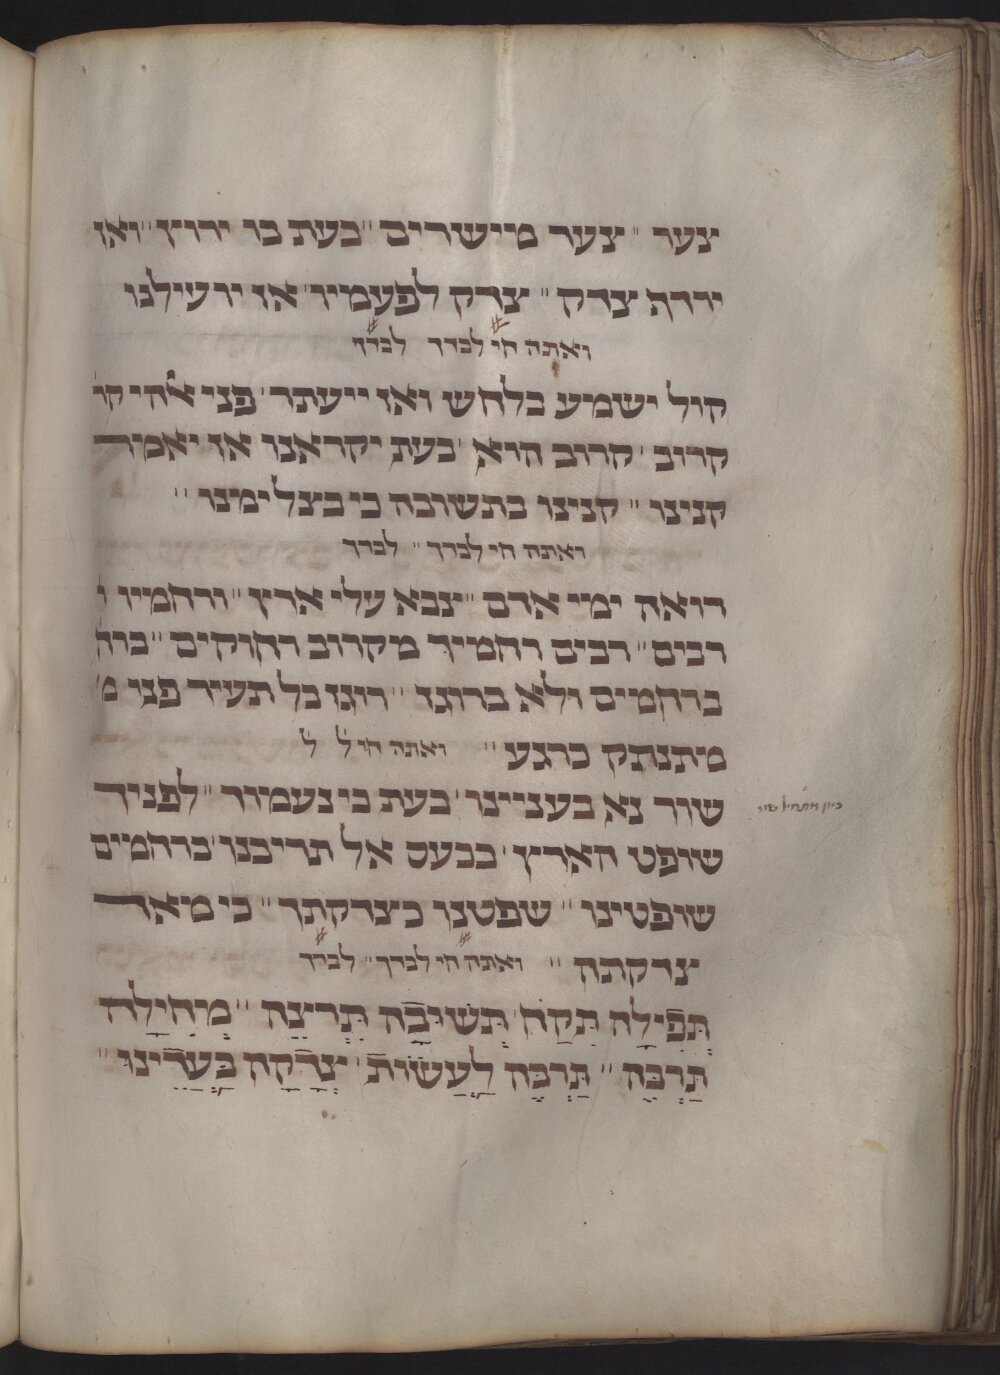 צעד ״ צעד מישרים ״ בעת בו ירוץ ״ ואז
ידרוך צדק ״ צדק לפעמיו אז יועילנו
ואתה חי לבדך לבדך
קול ישמע בלחש ואז ייעתר פני אלהי קר
קרוב ׳ קרוב הוא ׳ בעת יקראנו אז יאמר
קנינו ״ קנינו בתשובה כי בצל ימינו ״
ואתה חי לבדך ״ לבדך
רואה ימי אדם ״ צבא עלי ארץ ״ ורחמיו ר
רבים ״ רבים רחמיך מקרוב רחוקים ״
ברחמים ולא ברוגז ״ רוגז בל תעיר פנו מ׳
מתנתק כרגע ״ ואתה חי ל ל
שור נא בעניינו ׳ בעת כי נעמוד ״ לפניך
שופט הארץ ׳ בכעס אל תריבנו ׳ ברחמים
שופטינו ״ שפטנו כצדקתך ״ כי מאד
צדקתה ״ ואתה חי לבדך ״ לבדך
תְּפִלָּה תִּקַּח תְּשׁוּבָה תִּרְצֶה ״ מְחִילָה
תַּרְבֶּה ״ תַּרְבֶּה לַעֲשׂוֹת ׳ צְדָקָה בַּעֲדֵינוּ ״